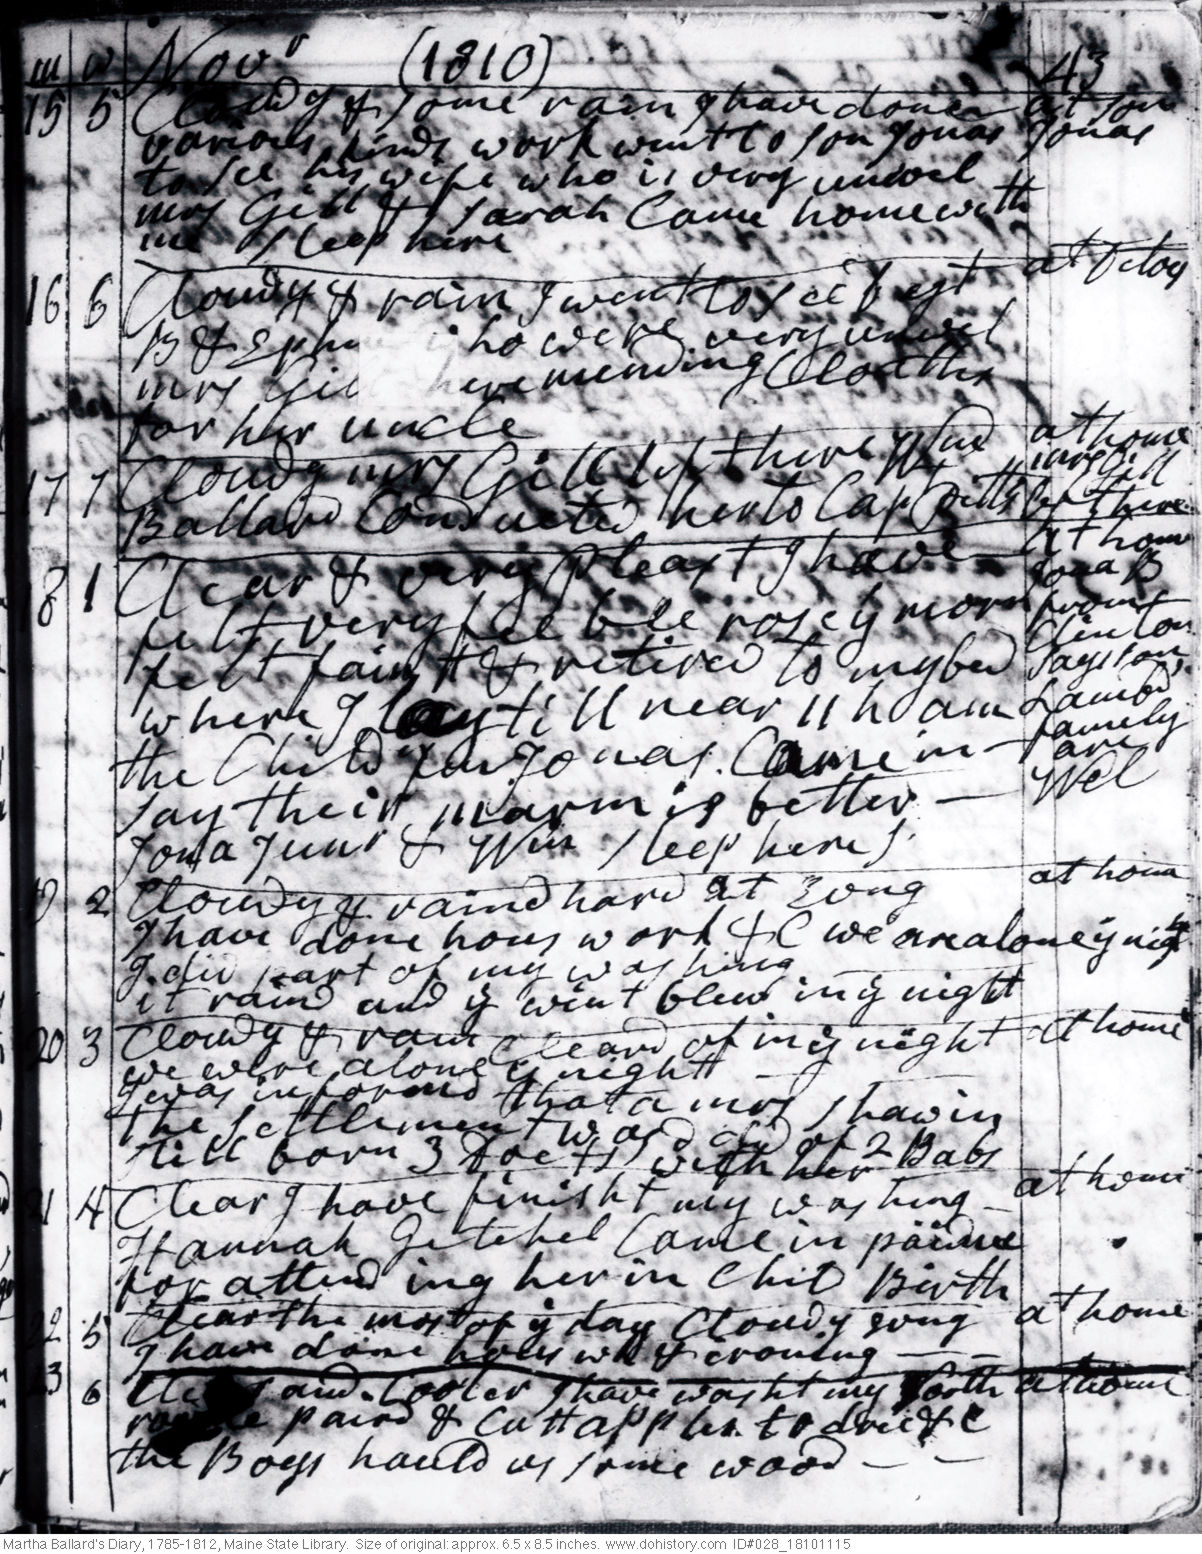 m w Novr (1810) 43
15 5 Cloudy & some rain I have done at son
various kinds work went to son Jonas Jonas
to see his wife who is very unwel
mrs Gill & Sarah Came home with
me sleep here
16 6 Cloudy & rain I went to see at
B & Ephm who were very unwel
mrs Gill here mending Cloaths
for her uncle
17 7 Cloudy mrs Gill left here Wm at home
Ballard Conducted her to Cap Pitts mrs Gill
left here
8 1 Clear & very pleast I have at home
felt very feeble rose y morn Jona B
felt faintt & retired to my bed from
where I lay till near 11 h am Clinton
the Child from Jonas. Came in says son
say their marm is better Lambd
Jona Junr & Wm sleep here famely
are
Wel
9 2 Cloudy & raind hard at Evng at home
I have done hous work & C we are alone y night
I did part of my washing
it raind and y wint blew in y night
20 3 Cloudy & rain Cleard of in y night at home
we were alone y night
I was informd that a mrs Shaw in
the Settlement was of 2 Babs
still born 3 Doct with her
21 4 Clear I have finisht my washing at home
Hannah Getchel Came in paid me
for attend ing her in Chil Birth
22 5 Clear the most of y day Cloudy Evng at home
I have done hous wk & croning
23 6 and Cooler I have washt my at home
paird & Cutt apples to drie & C
the Boys hauld us some wood
Martha Ballard's Diary, 1785-1812, Maine State Library. Size of original: approx. 6.5 x 8.5 inches. www.dohistory.com ID#028_18101115